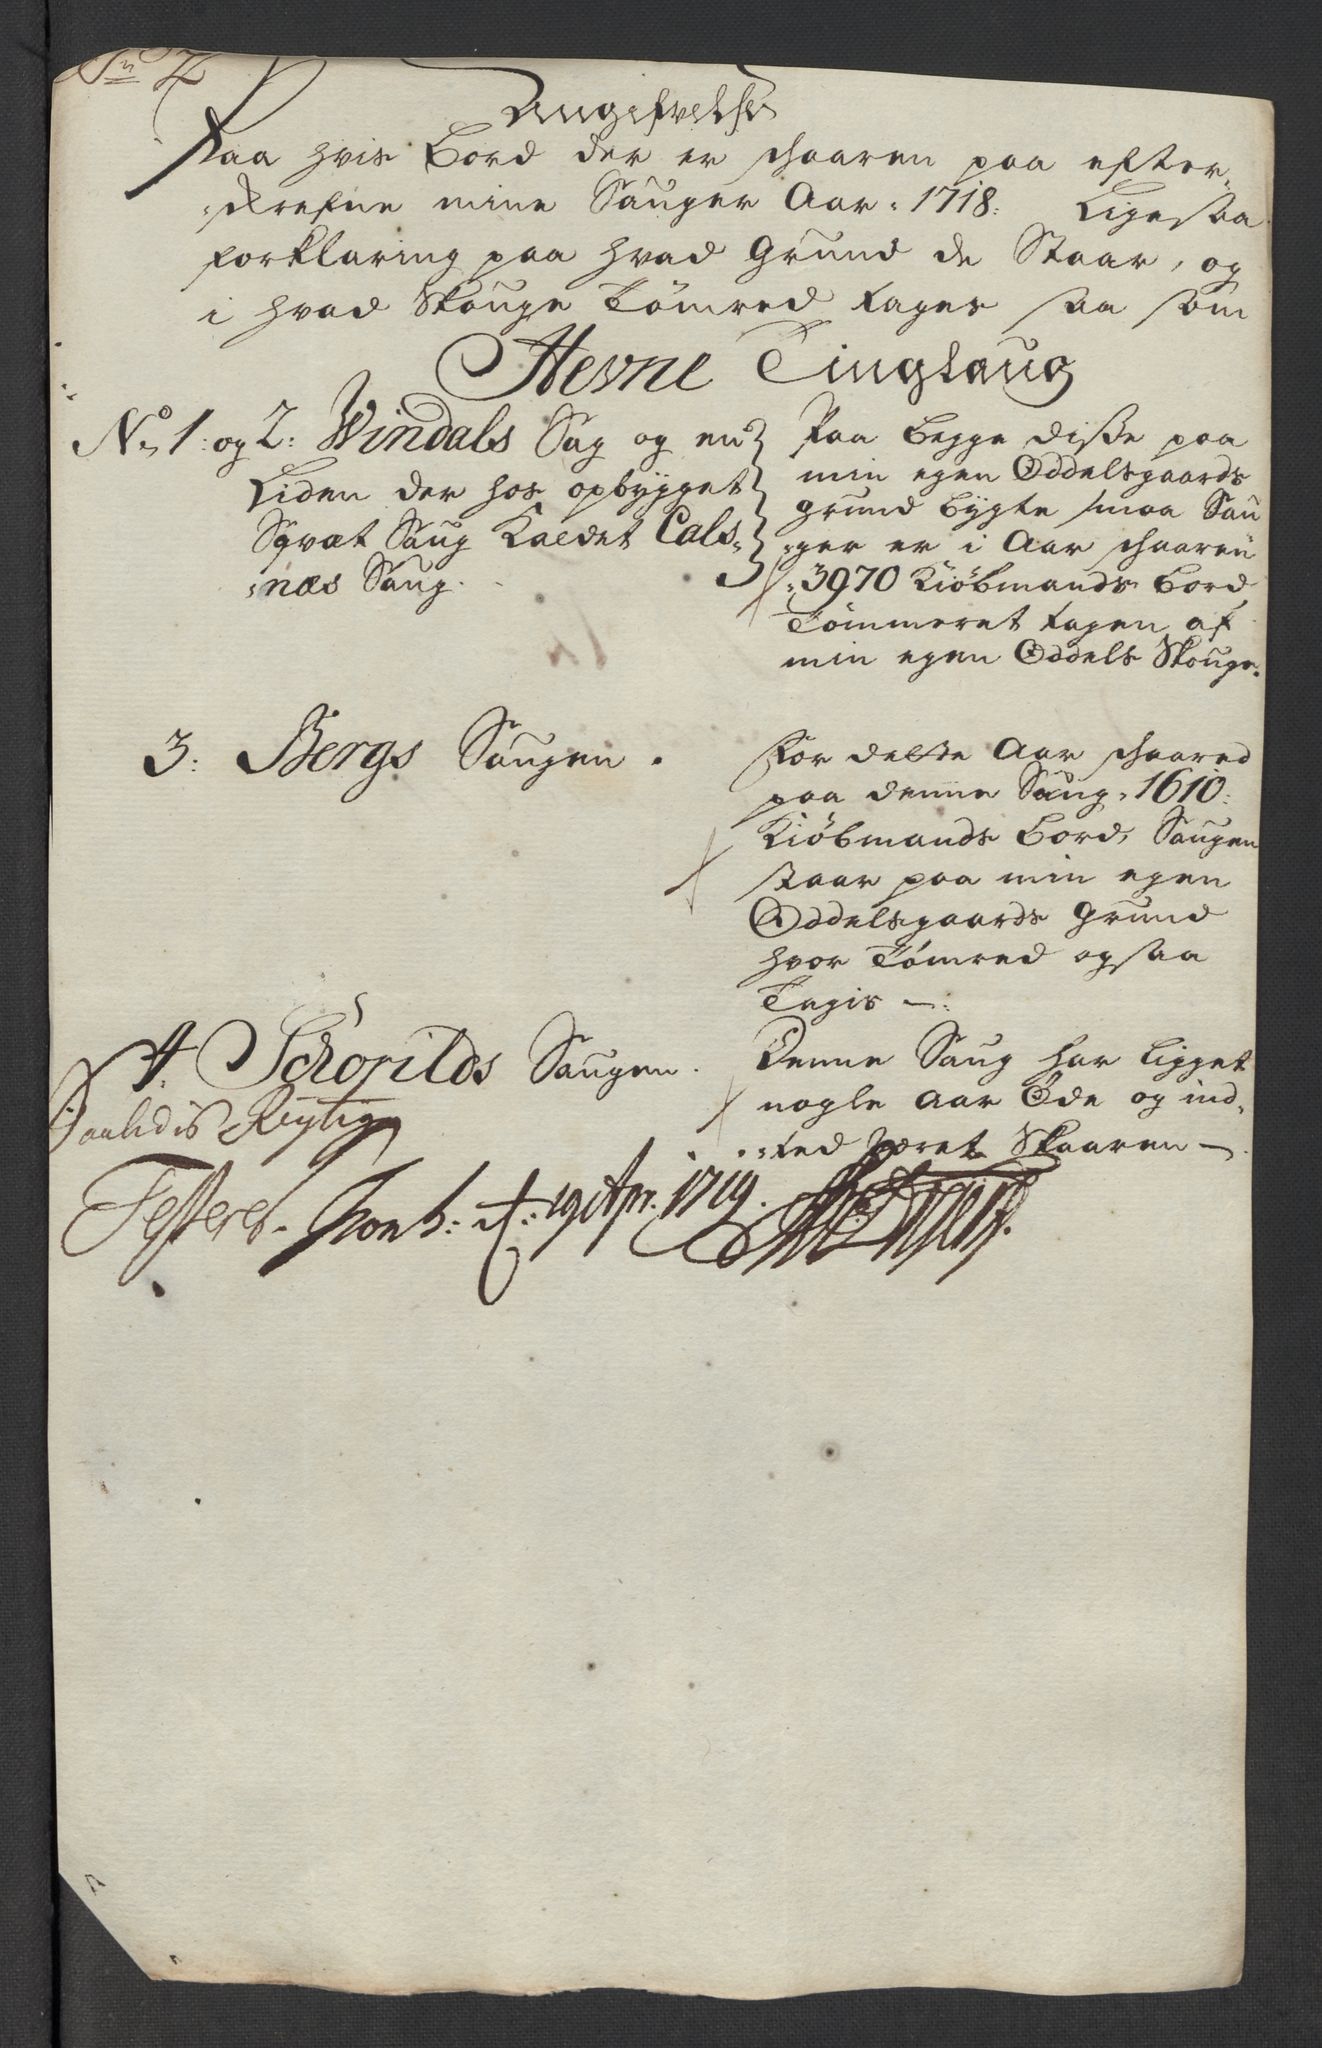 No 2
Angifvelse
Paa hvis Bord der er skaaren paa efter„
„skrefne mine Sauger Aar „1718: Ligesaa
forklaring paa hvad grund de Staar, og
i hvad Skouge Tömred tages saa som
Hevne Tinglaug
No 1: og 2: Windals Sag og en
Liden der hos opbygget
Sqvæt Saug Kaldet Cals„
„næs Saug.
Paa begge disse paa
min egen Oddelsgaards
grund bygte smaa Sau
„ger er i Aar skaaren
„3970 Kiöbmands Bord
Tömmeret tagen af
min egen Oddels Skouge.
3: Bergs Saugen.
For dette Aar skaared
paa denne Saug „1610:
Kiöbmands Bord, Saugen
staar paa min egen
Oddelsgaards grund
hvor Tömred ogsaa
Tagis —:
4: Schorilds Saugen.
Denne Saug har ligget
nogle Aar Öde og ind„
„ted været Skaaren —
Saaledis Rigtig
Testeret. Tronh: d: 19 Apr: 1719.